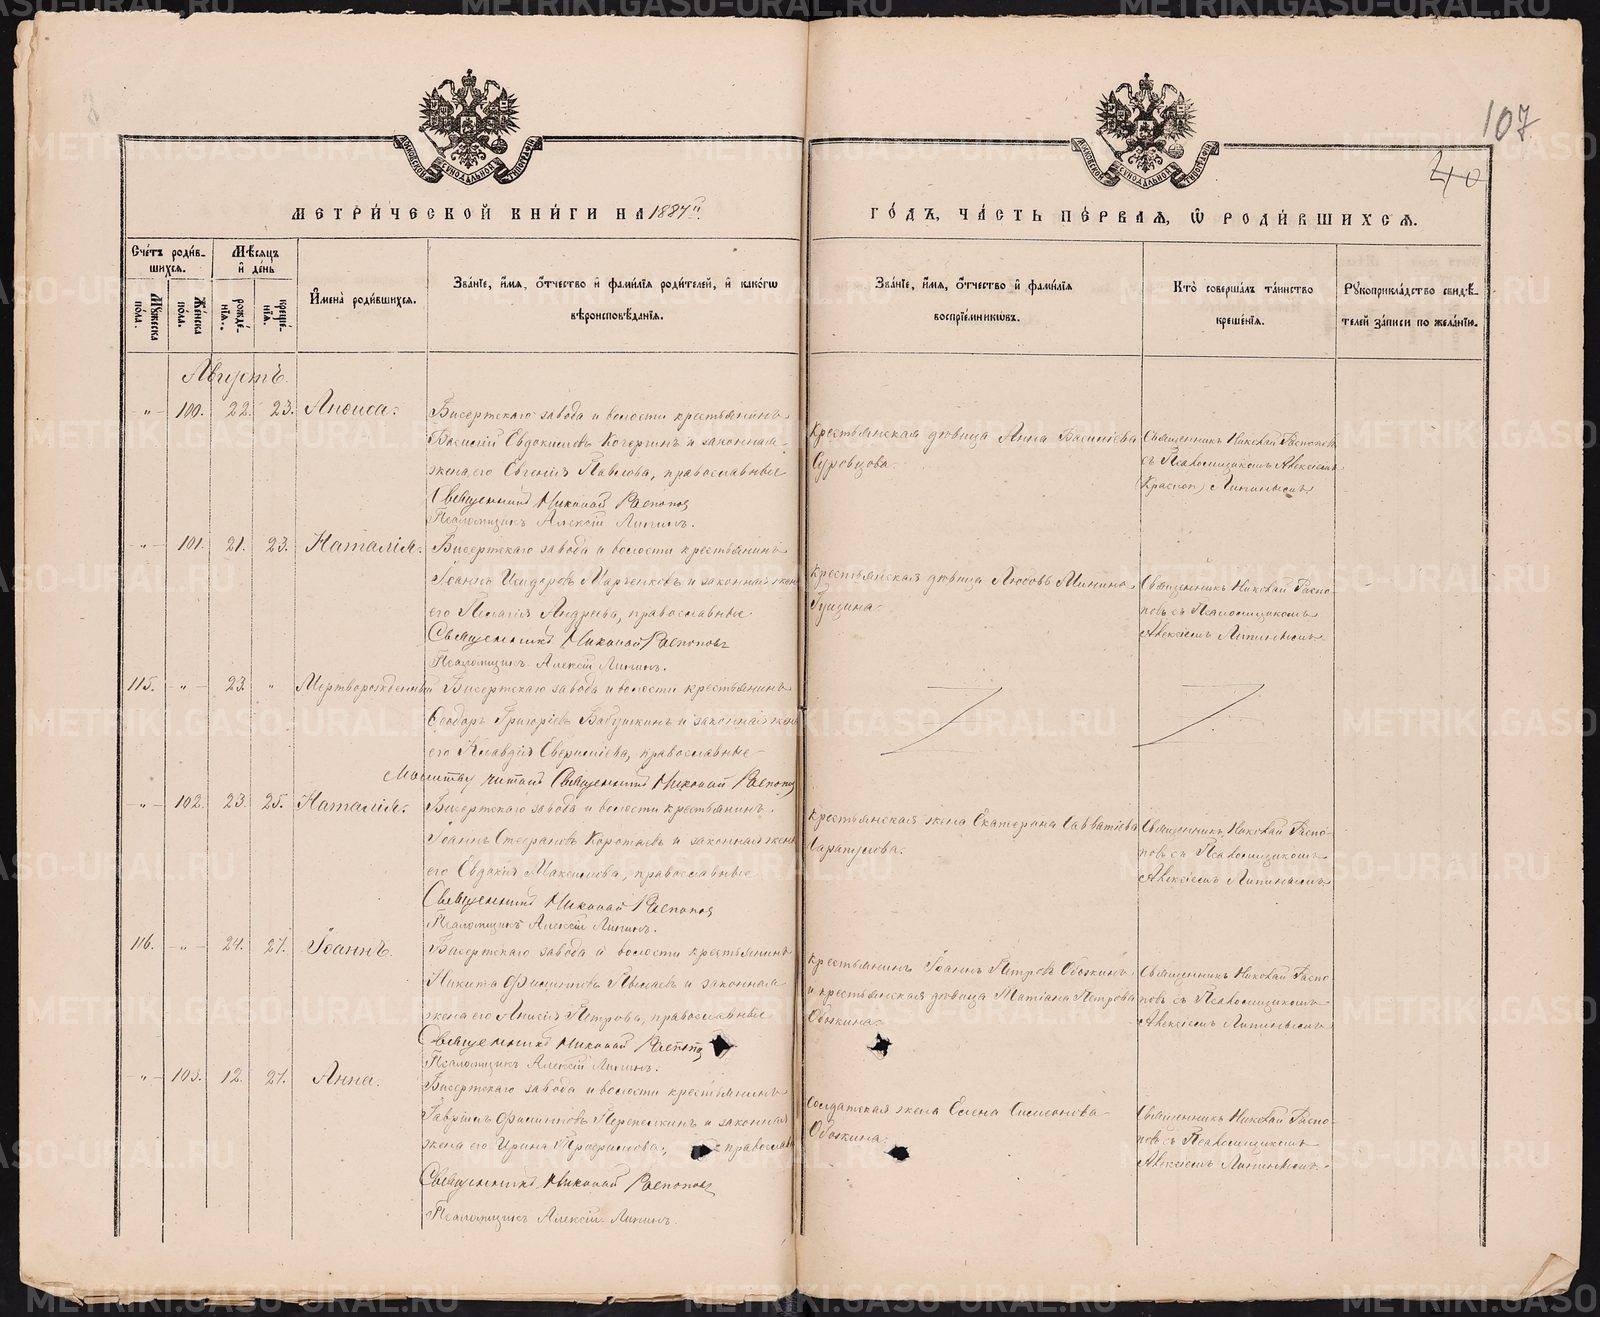 107
40
МЕТРИ́ЧЕСКОЙ КНИ́ГИ НА 1887й
ГО́ДЪ, ЧА́СТЬ ПЕ́РВАЯ, Ѽ РОДИ́ВШИХСЯ.
Сче́тъ роди́вшихся.
Мѣ́сяцъ и҆ де́нь
Мꙋжеска по́ла.
Же́нска по́ла.
рожде́нїѧ.
креще́нїѧ.
И҆мена̀ роди́вшихся.
Зва́нїе, и҆́мѧ, ѻ҆́тчество и҆ фами́лїѧ роди́телей, и҆ како́гѡ вѣроисповѣ́данїѧ.
Зва́нїе, и҆́мѧ, ѻ҆́тчество и҆ фами́лїѧ воспрїе́мникѡвъ.
Кто̀ соверша́лъ та́инство креще́нїѧ.
Рꙋкоприкла́дство свидѣ́телей за́писи по жела́нїю.
Августъ.
" 100. 22. 23. Анѳиса.
Бисертскаго завода и волости крестьянинъ
Василій Евдокимовъ Кочергинъ и законная
жена его Евгенія Павлова, православные
Священникъ Николай Распоповъ
Псаломщикъ Алексій Липинъ.
Крестьянская дѣвица Анна Василіева
Суровцова.
Священникъ Николай Распоповъ
съ Псаломщикомъ Алексіемъ
Липинымъ
" 101. 21. 23. Наталія.
Бисертскаго завода и волости крестьянинъ
Іоаннъ Исидоровъ Марченковъ и законная жена
его Пелагія Андреева, православные
Священникъ Николай Распоповъ
Псаломщикъ Алексій Липинъ.
Крестьянская дѣвица Любовь Минина
Гущина
Священникъ Николай Распо-
повъ съ Псаломщикомъ
Алексіемъ Липинымъ
115. " 23. " Мертворожденный
Бисертскаго завода и волости крестьянинъ
Ѳеодоръ Григоріевъ Бабушкинъ и законная жена
его Клавдія, православные
Молитву читалъ Священникъ Николай Распоповъ
" 102. 23. 25. Наталія.
Бисертскаго завода и волости крестьянинъ
Іоаннъ Стефановъ Коротаевъ и законная жена
его Евдокія Максимова, православные
Священникъ Николай Распоповъ
Псаломщикъ Алексій Липинъ.
Крестьянская жена Екатерина Савватіева
Сарапулова.
Священникъ Николай Распо-
повъ съ Псаломщикомъ
Алексіемъ Липинымъ
116. " 24. 27. Іоаннъ.
Бисертскаго завода и волости крестьянинъ
Никита Филипповъ и законная
жена его Анисія Петрова, православные
Священникъ Николай Распоповъ
Псаломщикъ Алексій Липинъ.
Крестьянинъ Іоаннъ Петровъ Обожинъ
и крестьянская дѣвица Татіана Петрова
Обожина
Священникъ Николай Распо-
повъ съ Псаломщикомъ
Алексіемъ Липинымъ
" 103. 12. 27. Анна.
Бисертскаго завода и волости крестьянинъ
Гавріилъ Филипповъ Перепелкинъ и законная
жена его Ирина Трофимова, православ
Священникъ Николай Распоповъ
Псаломщикъ Алексій Липинъ.
Солдатская жена Елена Симеонова
Обожина
Священникъ Николай Распо-
повъ съ Псаломщикомъ
Алексіемъ Липинымъ.
METRIKI.GASO-URAL.RU